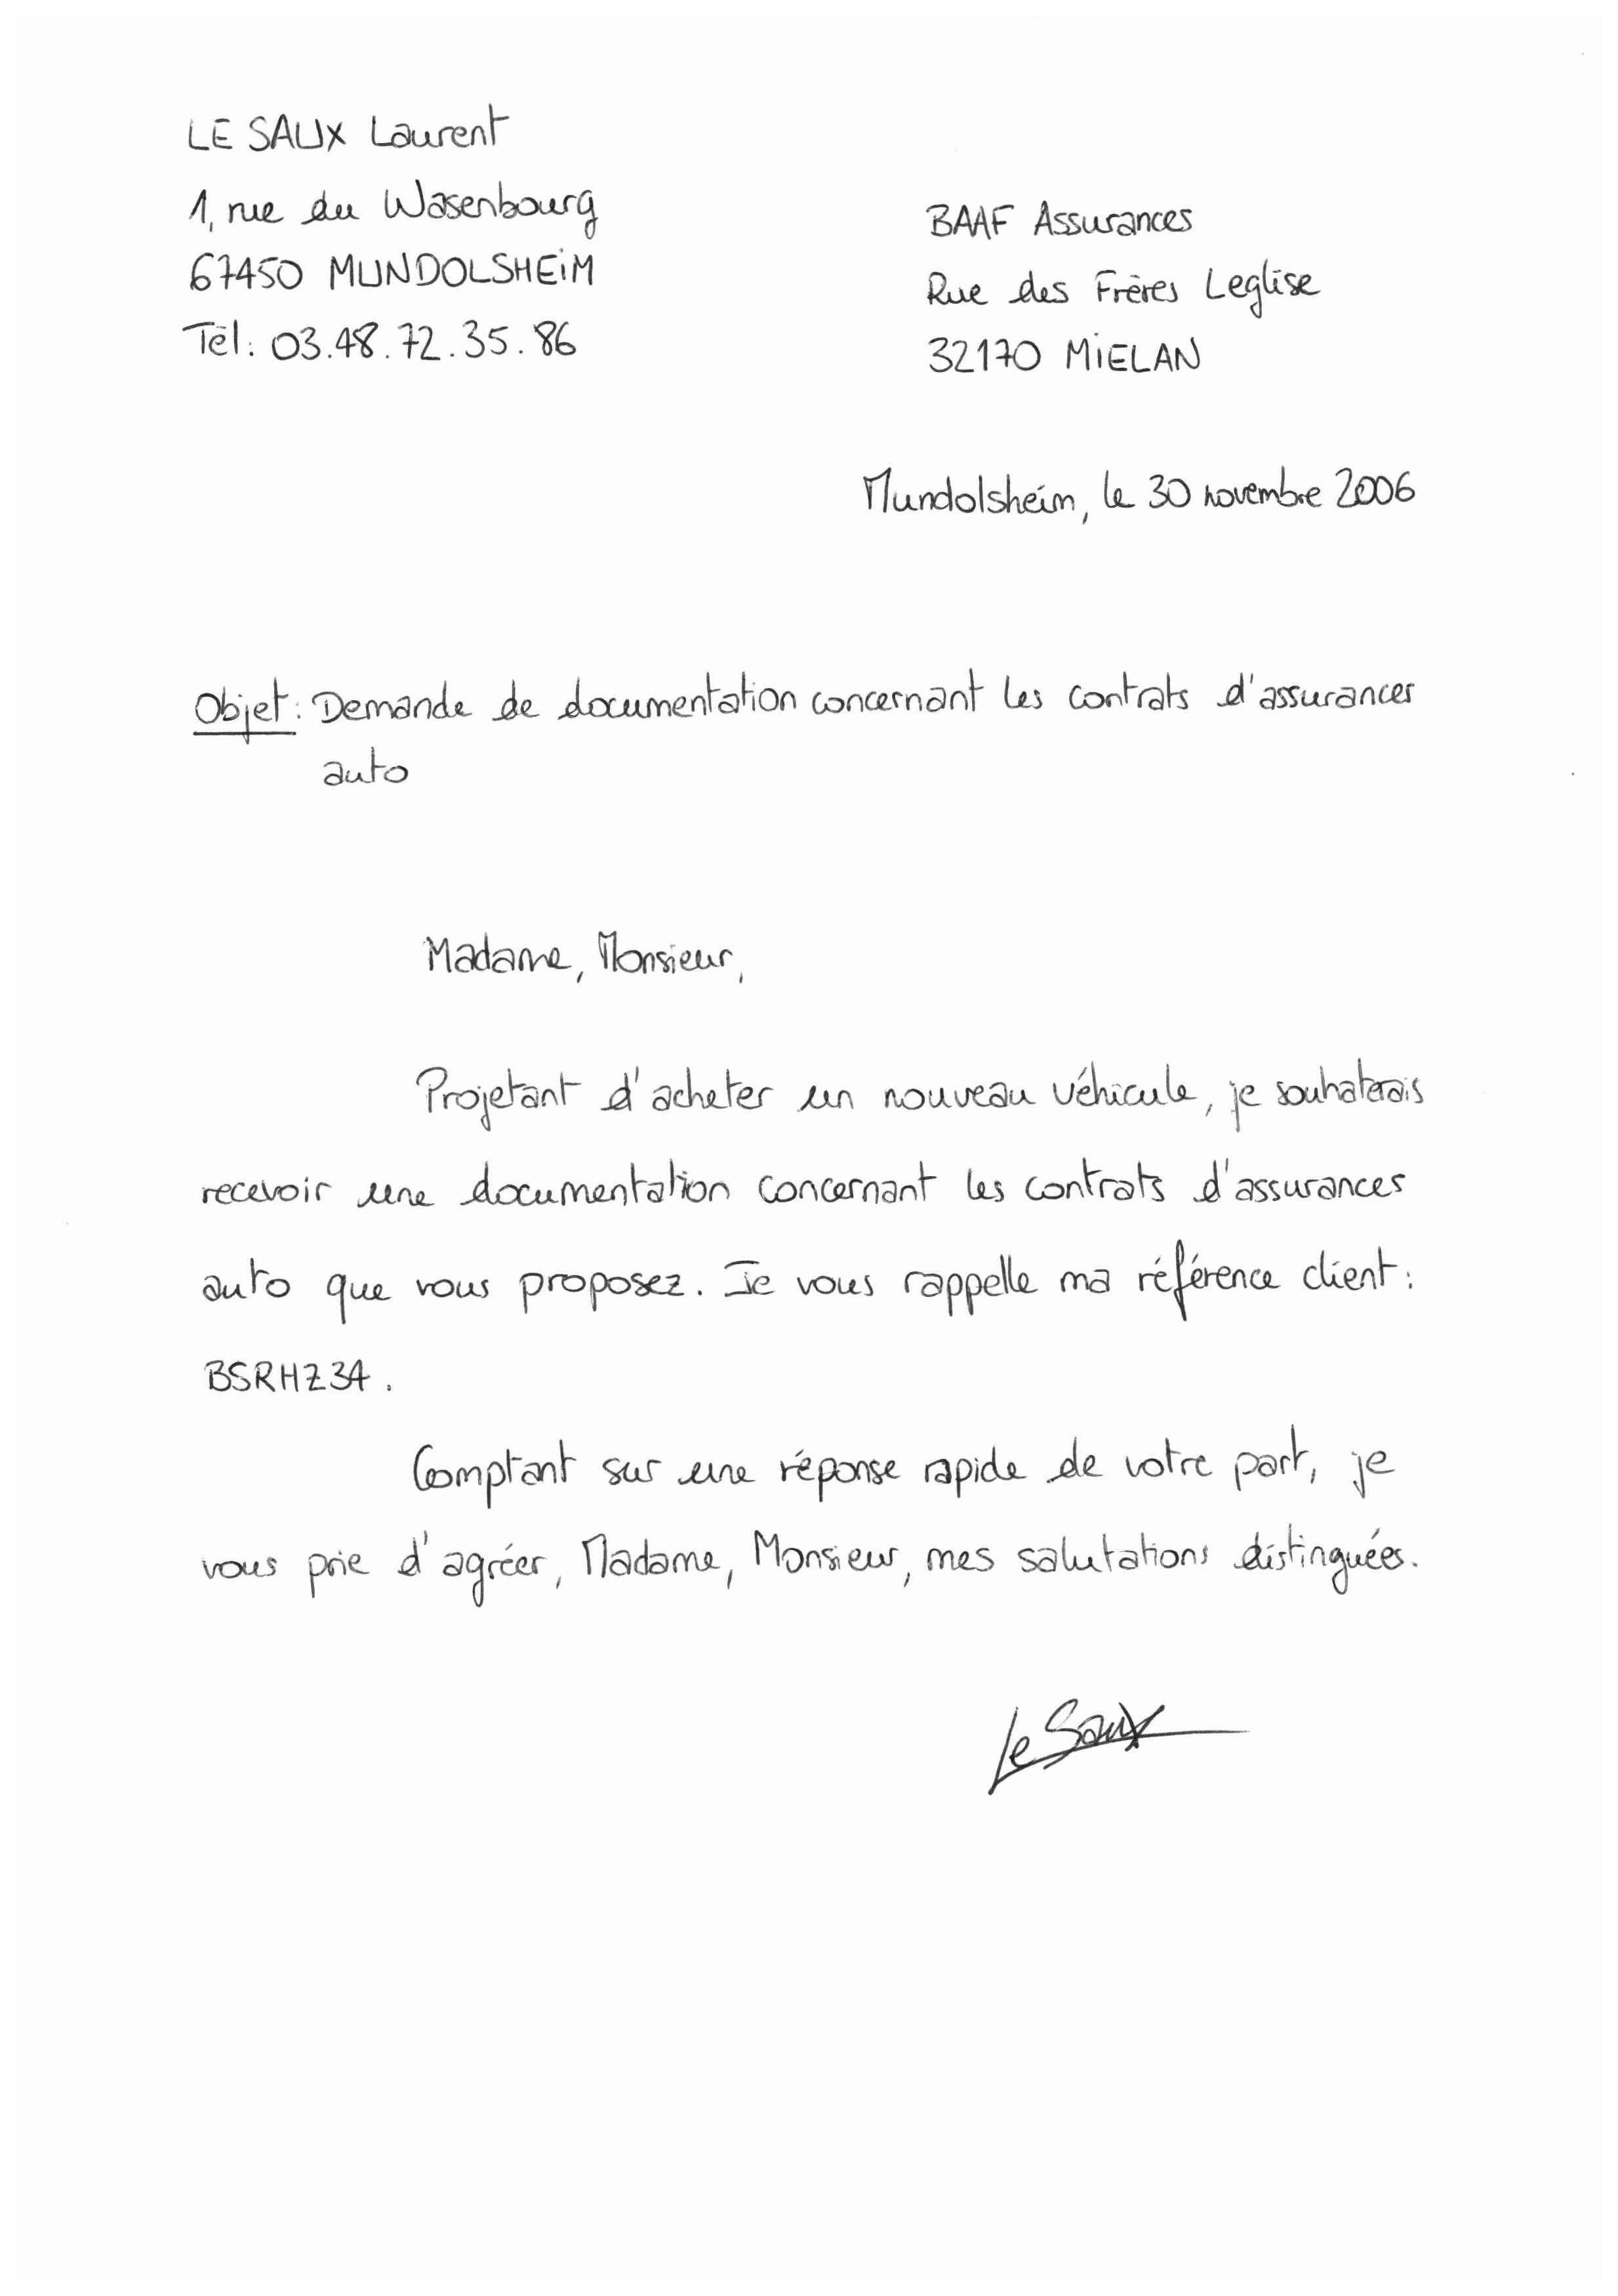 LE SAUX Laurent
1, rue du Wasenbourg
67450 MUNDOLSHEIM
Tél: 03.48.72.35.86
BAAF Assurances
Rue des Frères Leglise
32170 MIELAN
Mundolsheim, le 30 novembre 2006
Objet: Demande de documentation concernant les contrats d'assurances
auto
Madame, Monsieur,
Projetant d'acheter un nouveau véhicule, je souhaterais
recevoir une documentation concernant les contrats d'assurances
auto que vous proposez. Je vous rappelle ma référence client:
BSRHZ34.
Comptant sur une réponse rapide de votre part, je
vous prie d'agréer, Madame, Monsieur, mes salutations distinguées.
Le Saux